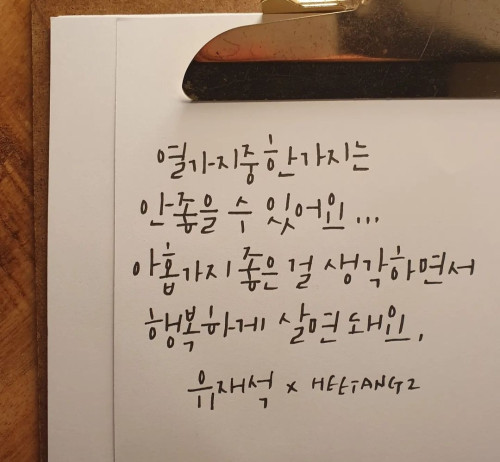 열가지중 한가지는
안좋을 수 있어인...
아홉가지 좋은 걸 생각하면서
행복하게 살면돼인.
유재석 x HEETANG2